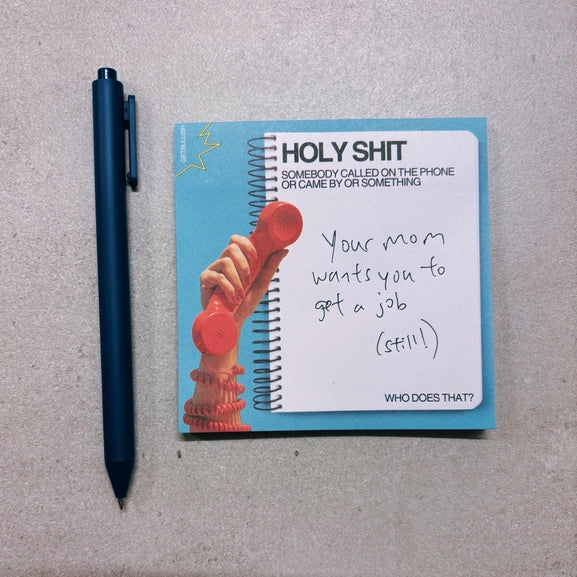 GETBULLISH
HOLY SHIT
SOMEBODY CALLED ON THE PHONE
OR CAME BY OR SOMETHING
Your mom
wants you to
get a job
(still!)
WHO DOES THAT?